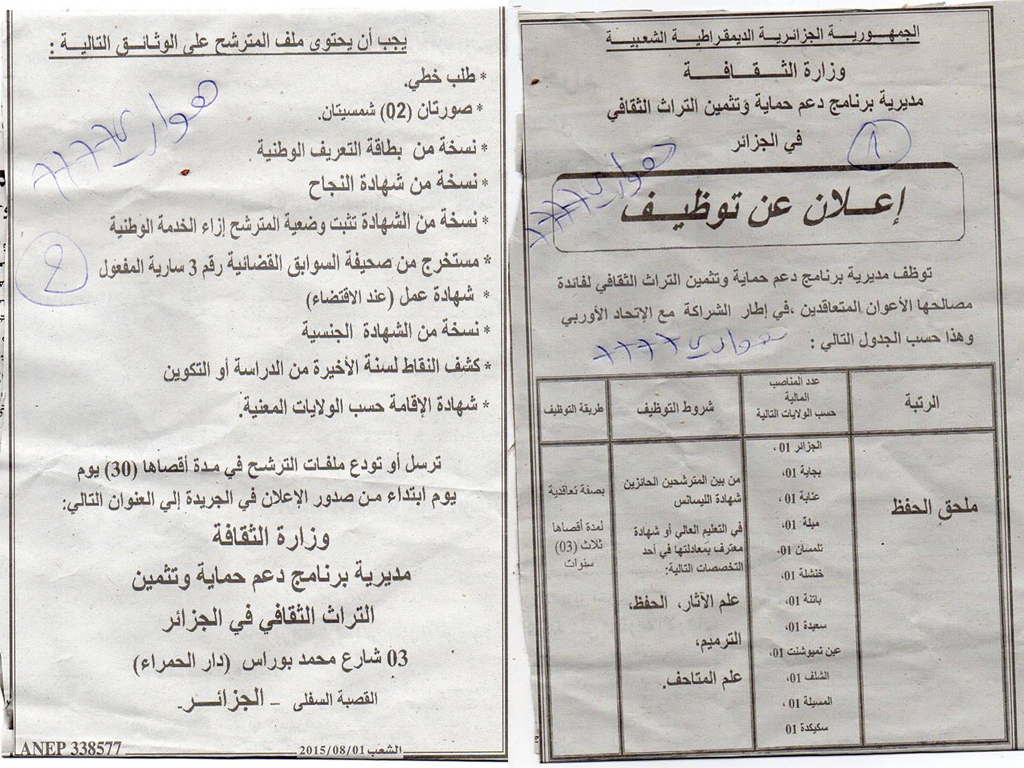 الجمهورية الجزائرية الديمقراطية الشعبية
وزارة الثقافة
مديرية برنامج دعم حماية وتثمين التراث الثقافي
في الجزائر
1
إعلان عن توظيف
توظف مديرية برنامج دعم حماية وتثمين التراث الثقافي لفائدة
مصالحها الأعوان المتعاقدين ،في إطار الشراكة مع الإتحاد الأوربي
وهذا حسب الجدول التالي :
الرتبة
عدد المناصب
المالية
حسب الولايات التالية
شروط التوظيف
طريقة التوظيف
ملحق الحفظ
الجزائر 01،
بجاية 01،
عنابة 01،
ميلة 01،
تلمسان 01،
خنشلة 01،
باتنة 01،
سعيدة 01،
عين تموشنت 01،
الشلف 01،
المسيلة 01،
سكيكدة 01
من بين المترشحين الحائزين
شهادة الليسانس
في التعليم العالي أو شهادة
معترف بمعادلتها في أحد
التخصصات التالية:
علم الآثار، الحفظ،
الترميم،
علم المتاحف.
بصفة تعاقدية
لمدة أقصاها
ثلاث (03)
سنوات
يجب أن يحتوى ملف المترشح على الوثائق التالية :
* طلب خطي.
* صورتان (02) شمسيتان.
* نسخة من بطاقة التعريف الوطنية
* نسخة من شهادة النجاح
* نسخة من الشهادة تثبت وضعية المترشح إزاء الخدمة الوطنية
* مستخرج من صحيفة السوابق القضائية رقم 3 سارية المفعول
* شهادة عمل (عند الاقتضاء)
* نسخة من الشهادة الجنسية
* كشف النقاط لسنة الأخيرة من الدراسة أو التكوين
* شهادة الإقامة حسب الولايات المعنية.
2
ترسل أو تودع ملفات الترشح في مدة أقصاها (30) يوم
يوم ابتداء من صدور الإعلان في الجريدة إلي العنوان التالي:
وزارة الثقافة
مديرية برنامج دعم حماية وتثمين
التراث الثقافي في الجزائر
03 شارع محمد بوراس (دار الحمراء)
القصبة السفلى - الجزائر.
الشعب 2015/08/01
ANEP 338577